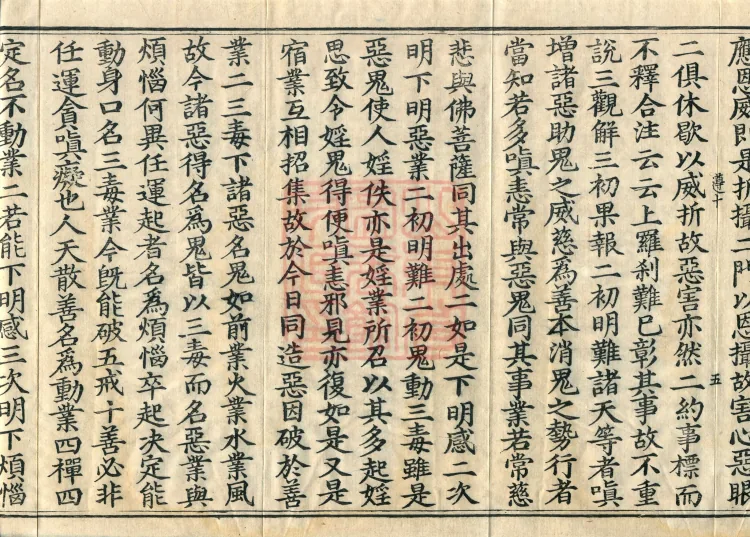 應恩威即是折攝二門以恩攝故害心惡眼
二俱休歇以威折故惡害亦然二約事標而
不釋合注云云上羅刹難已彰其事故不重
說三觀解三初果報二初明難諸天等者嗔
增諸惡助鬼之威慈為善本消鬼之勢行者
當知若多嗔恚常與惡鬼同其事業若常慈
悲與佛菩薩同其出處二如是下明感二次
明下明惡業二初明難二初鬼動三毒雖是
惡鬼使人婬佚亦是婬業所召以其多起婬
思致令婬鬼得便嗔恚邪見亦復如是又是
宿業互相招集故於今日同造惡因破於善
業二三毒下諸惡名鬼如前業火業水業風
故今諸惡得名為鬼皆以三毒而名惡業與
煩惱何異任運起者名為煩惱卒起决定能
動身口名三毒業今旣能破五戒十善必非
任運貪嗔癡也人天散善名為動業四禪四
定名不動業二若能下明感三次明下煩惱
遵十
五